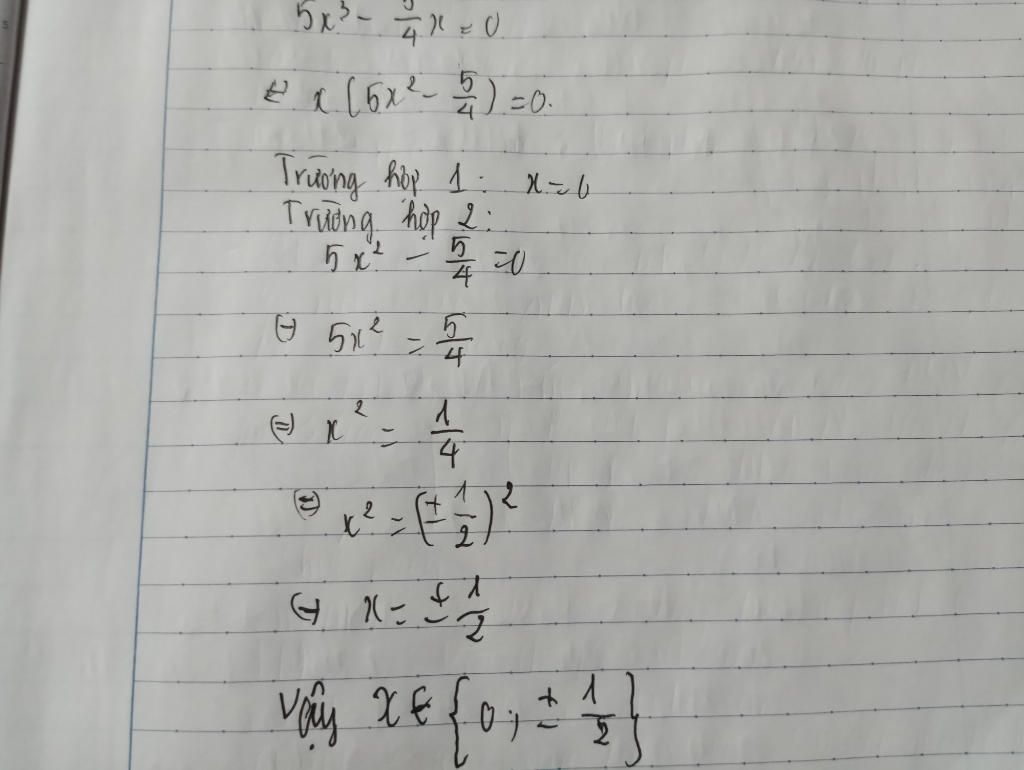 5x³ - 5/4 x = 0
⇔ x (5x² - 5/4) = 0.
Trường hợp 1: x = 0
Trường hợp 2:
5x² - 5/4 = 0
⇔ 5x² = 5/4
⇔ x² = 1/4
⇔ x² = (± 1/2)²
⇔ x = ± 1/2
Vậy x ∈ {0; ± 1/2}